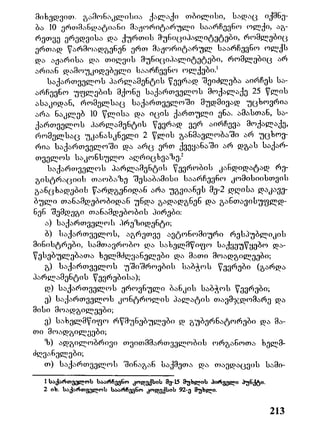 მიხედვით. გამონაკლისია ქალაქი თბილისი, სადაც იქმნე-
ბა 10 ერთმანდატიანი მაჟორიტარული საარჩევნო ოლქი, აგ-
რეთვე ერედვისა და ქურთის მუნიციპალიტეტები, რომლებიც
ერთად წარმოადგენენ ერთ მაჟორიტარულ საარჩევნო ოლქს
და აჟარისა და თიღვის მუნიციპალიტეტები, რომლებიც არ
არიან დამოუკიდებელი საარჩევნო ოლქები.¹
საქართველოს პარლამენტის წევრად შეიძლება აირჩეს სა-
არჩევნო უფლების მქონე საქართველოს მოქალაქე 25 წლის
ასაკიდან, რომელსაც საქართველოში მუდმივად უცხოვრია
არა ნაკლებ 10 წლისა და იცის ქართული ენა. ამასთან, სა-
ქართველოს პარლამენტის წევრად ვერ აირჩევა მოქალაქე,
რომელსაც უკანასკნელი 2 წლის განმავლობაში არ უცხოვ-
რია საქართველოში და არც ერთ ქვეყანაში არ დგას საქარ-
თველოს საკონსულო აღრიცხვაზე.²
საქართველოს პარლამენტის წევრობის კანდიდატად რე-
გისტრაციის თაობაზე შესაბამისი საარჩევნო კომისიისთვის
განცხადების წარდგენიდან არა უგვიანეს მე-2 დღისა დაკავე-
ბული თანამდებობიდან უნდა გადადგნენ და განთავისუფლდ-
ნენ შემდეგი თანამდებობის პირები:
ა) საქართველოს პრეზიდენტი;
ბ) საქართველოს, აგრეთვე ავტონომიური რესპუბლიკის
მინისტრები, სამთავრობო და სახელმწიფო საქვეუწყებო და-
წესებულებათა ხელმძღვანელები და მათი მოადგილეები;
გ) საქართველოს უშიშროების საბჭოს წევრები (გარდა
პარლამენტის წევრებისა);
დ) საქართველოს ეროვნული ბანკის საბჭოს წევრები;
ე) საქართველოს კონტროლის პალატის თავმჯდომარე და
მისი მოადგილეები;
ვ) სახელმწიფო რწმუნებულები გუბერნატორები და მა-
თი მოადგილეები;
ზ) ადგილობრივი თვითმმართველობის ორგანოთა ხელმ-
ძღვანელები;
თ) საქართველოს შინაგან საქმეთა და თავდაცვის სამი-
1 საქართველოს საარჩევნო კოდექსის მე-15 მუხლის პირველი პუნქტი.
2 იხ. საქართველოს საარჩევნო კოდექსის 92-ე მუხლი.
213